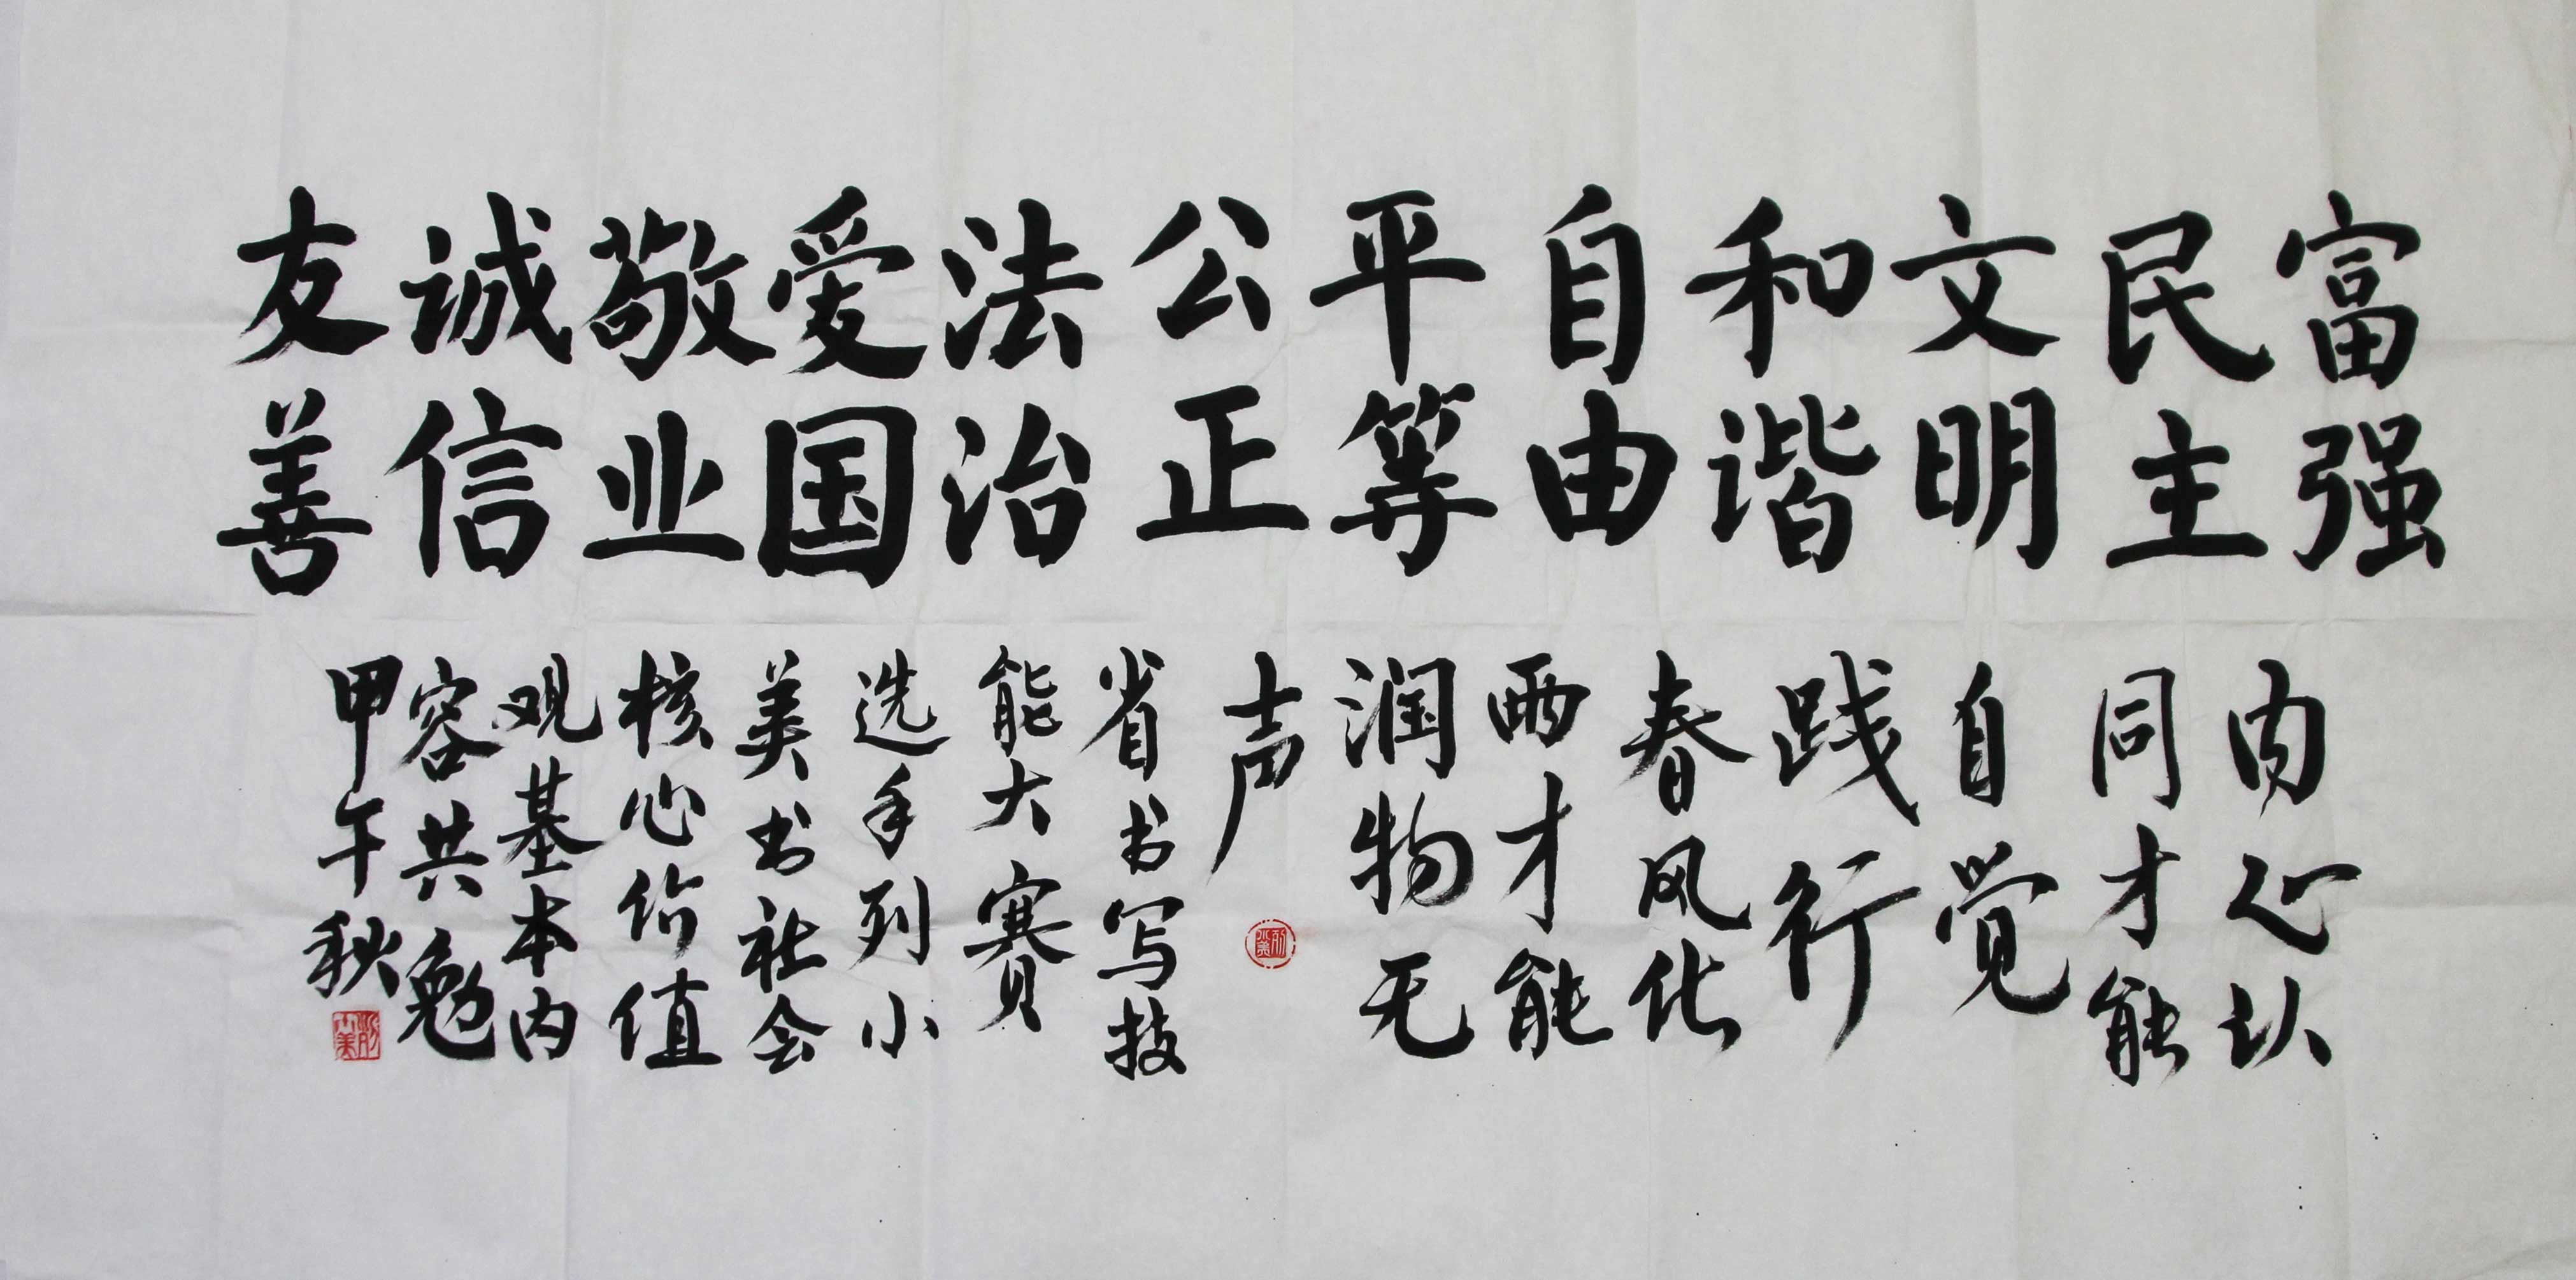 富强
民主
文明
和谐
自由
平等
公正
法治
爱国
敬业
诚信
友善
内心认
同才能
自觉
践行
春风化
雨才能
润物无
声
省书写技
能大赛
选手列小
美书社会
核心价值
观基本内
容共勉
甲午秋